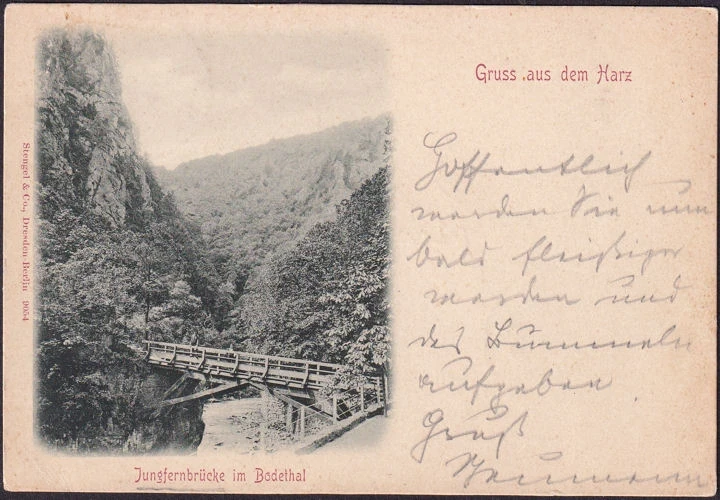 Gruss aus dem Harz
Hoffentlich
werden Sie nun
bald fleißiger
werden und
das Bummeln
aufgeben
Gruß
Neumann
Jungfernbrücke im Bodethal
Stengel & Co., Dresden Berlin 9054